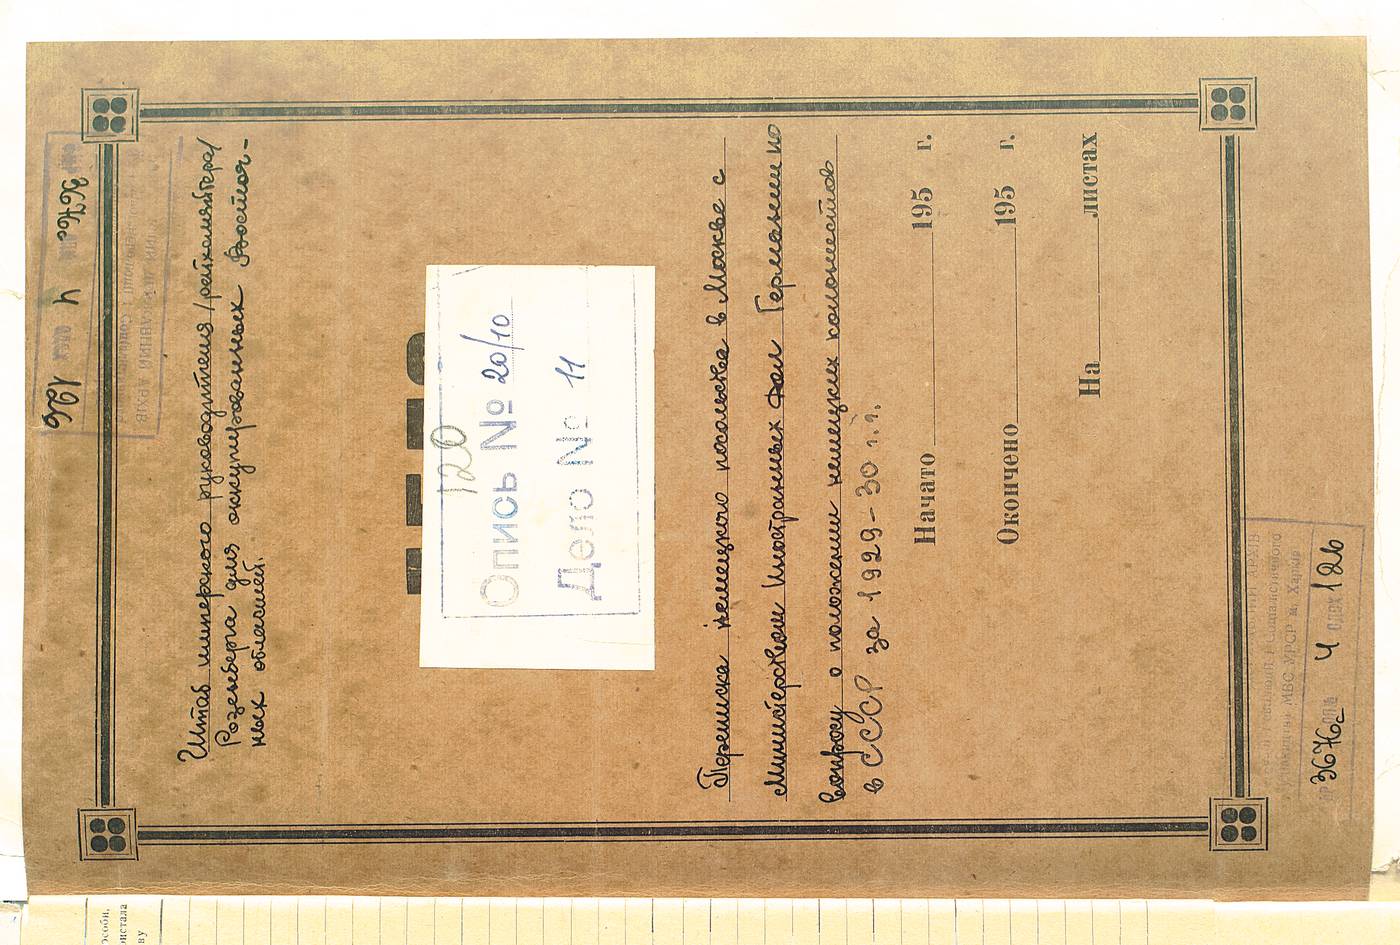 3676с 4 126
Штаб имперского руководителя /рейхсляйтера/
Розенберга для оккупированных Восточ-
ных областей.
120
Опись № 20/10
Дело № 11
Переписка немецкого посольства в Москве с
Министерством Иностранных дел Германии по
вопросу о положении немецких колонистов
в СССР за 1929-30 г.г.
Начато 195 г.
Окончено 195 г.
На листах
АРХІВ
МВС УРСР м. Харків
3676с 4 126
особи,
ристала
ву